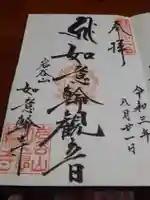 奉拝
令和三年
八月廿一日
如意輪観音
岩谷山
如意輪寺